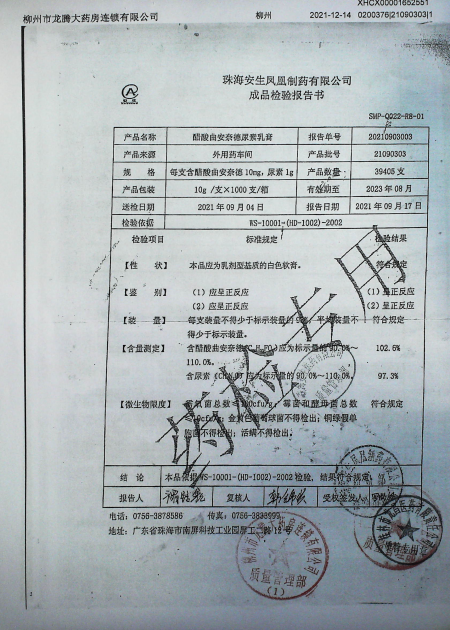 XHCX00001652551
柳州市龙腾大药房连锁有限公司 柳州 2021-12-14 0200376|21090303|1
珠海安生凤凰制药有限公司
成品检验报告书
SMP-Q022-R8-01
产品名称 醋酸曲安奈德尿素乳膏 报告单号 20210903003
产品来源 外用药车间 产品批号 21090303
规 格 每支含醋酸曲安奈德10mg，尿素1g 产品数量 39405 支
产品包装 10g /支×1000支/箱 有效期至 2023 年 08 月
送检日期 2021 年 09 月 04 日 报告日期 2021 年 09 月 17 日
检验依据 WS-10001-(HD-1002)-2002
检验项目 标准规定 检验结果
【性 状】 本品应为乳剂型基质的白色软膏。 符合规定
【鉴 别】 （1）应呈正反应 （1）呈正反应
（2）应呈正反应 （2）呈正反应
【装 量】 每支装量不得少于标示装量的 平均装量不 符合规定
得少于标示装量。
【含量测定】 含醋酸曲安奈德 应为标示量的 90.0%～ 102.6%
110.0%。
含尿素 应为标示量的 90.0%～110.0%。 97.3%
【微生物限度】 需氧菌总数 cfu/g，霉菌和酵母菌总数 符合规定
cfu/g；金黄色葡萄球菌不得检出；铜绿假单
胞菌不得检出；活螨不得检出。
药检专用
结 论 本品依据WS-10001-(HD-1002)-2002检验，结果符合规定。
报告人 复核人 受权签发人
电话：0756-3878586 传真：
地址：广东省珠海市南屏科技工业园屏工二路 12 号
柳州市龙腾大药房连锁有限公司
质量管理部
（1）